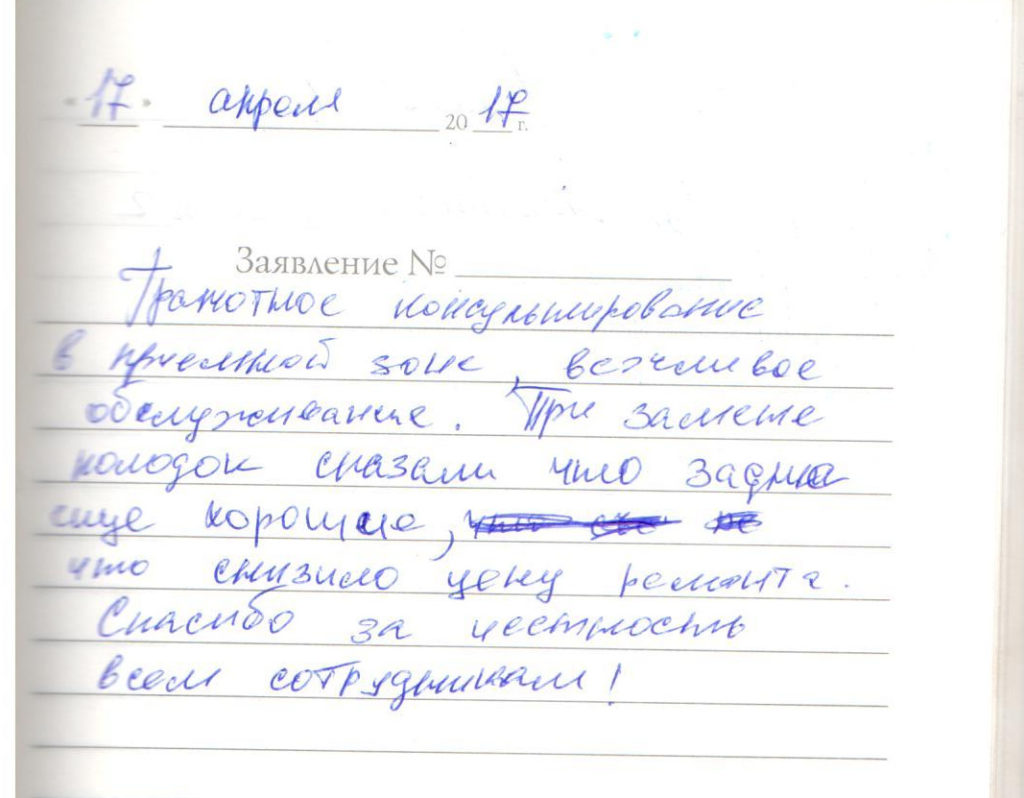 « 17 » апреля 20 17 г.
Заявление №
Грамотное консультирование
в приемной зоне, вежливое
обслуживание. При замене
колодок сказали что задние
еще хорошие,
что снизило цену ремонта.
Спасибо за честность
всем сотрудникам!